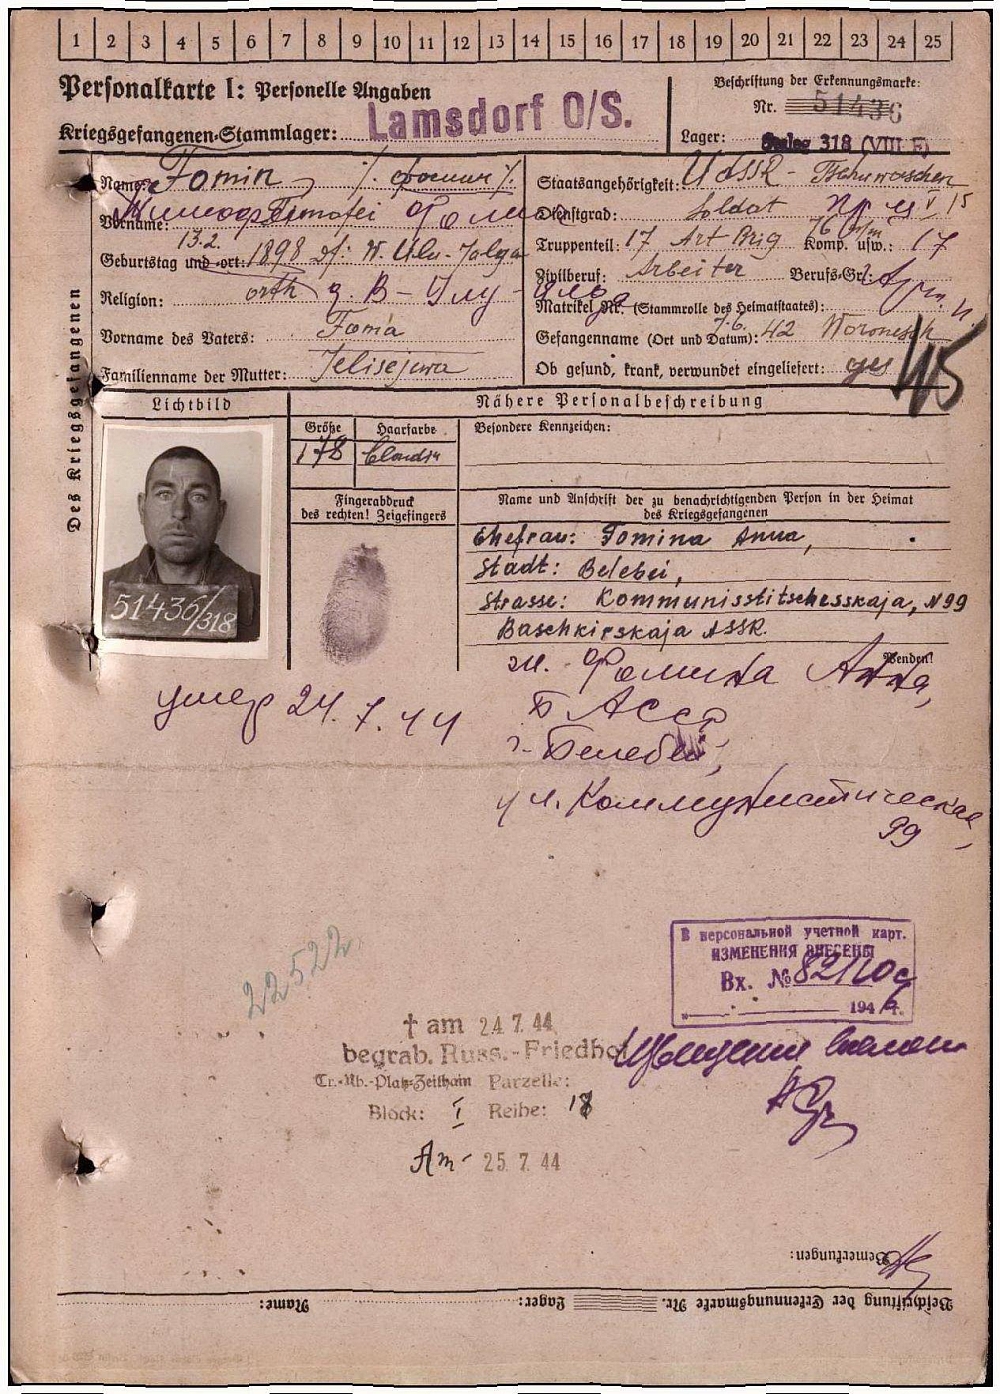 1 2 3 4 5 6 7 8 9 10 11 12 13 14 15 16 17 18 19 20 21 22 23 24 25
Personalkarte I: Personelle Angaben
Kriegsgefangenen-Stammlager: Lamsdorf O/S.
Beschriftung der Erkennungsmarke:
Nr. 51436
Lager: Stalag 318 (VIII F)
Des Kriegsgefangenen
Name: Fomin /. фомин /.
Vorname: Timofei
Тимофей Фомич
Geburtstag und -ort: 13.2. 1898
Religion: orth
д. В-Улу-Елга
Vorname des Vaters: Foma
Familienname der Mutter: Jelisejewa
Staatsangehörigkeit: UdSSR - Tschuwaschen
Dienstgrad: Soldat
Truppenteil: 17 Art Brig Komp. usw.: 17
Zivilberuf: Arbeiter Berufs-Gr.:
Matrikel Nr. (Stammrolle des Heimatstaates):
Gefangennahme (Ort und Datum): 7.6. 42 Woronesch
Ob gesund, krank, verwundet eingeliefert: ges
45
Lichtbild
Nähere Personalbeschreibung
Größe Haarfarbe Besondere Kennzeichen:
178 blond
Fingerabdruck
des rechten! Zeigefingers
Name und Anschrift der zu benachrichtigenden Person in der Heimat
des Kriegsgefangenen
Ehefrau: Fomina Anna,
Stadt: Belebei,
Strasse: Kommunisstitschesskaja, N 99
Baschkirskaja ASSR.
51436/318
Wenden!
ж. Фомина Анна,
Б АССР
г. Белебей,
ул. Коммунистическая,
99
умер 24.7.44
22522
В персональной учетной карт.
ИЗМЕНЕНИЯ ВНЕСЕНЫ
Вх. № 82110с
194 г.
† am 24 7. 44
begrab. Russ.-Friedhof
Tr.-Üb.-Platz-Zeithain Parzelle:
Block: I Reihe: 18
25 7. 44
Bemerkungen:
Name: Lager: Beschriftung der Erkennungsmarke Nr.